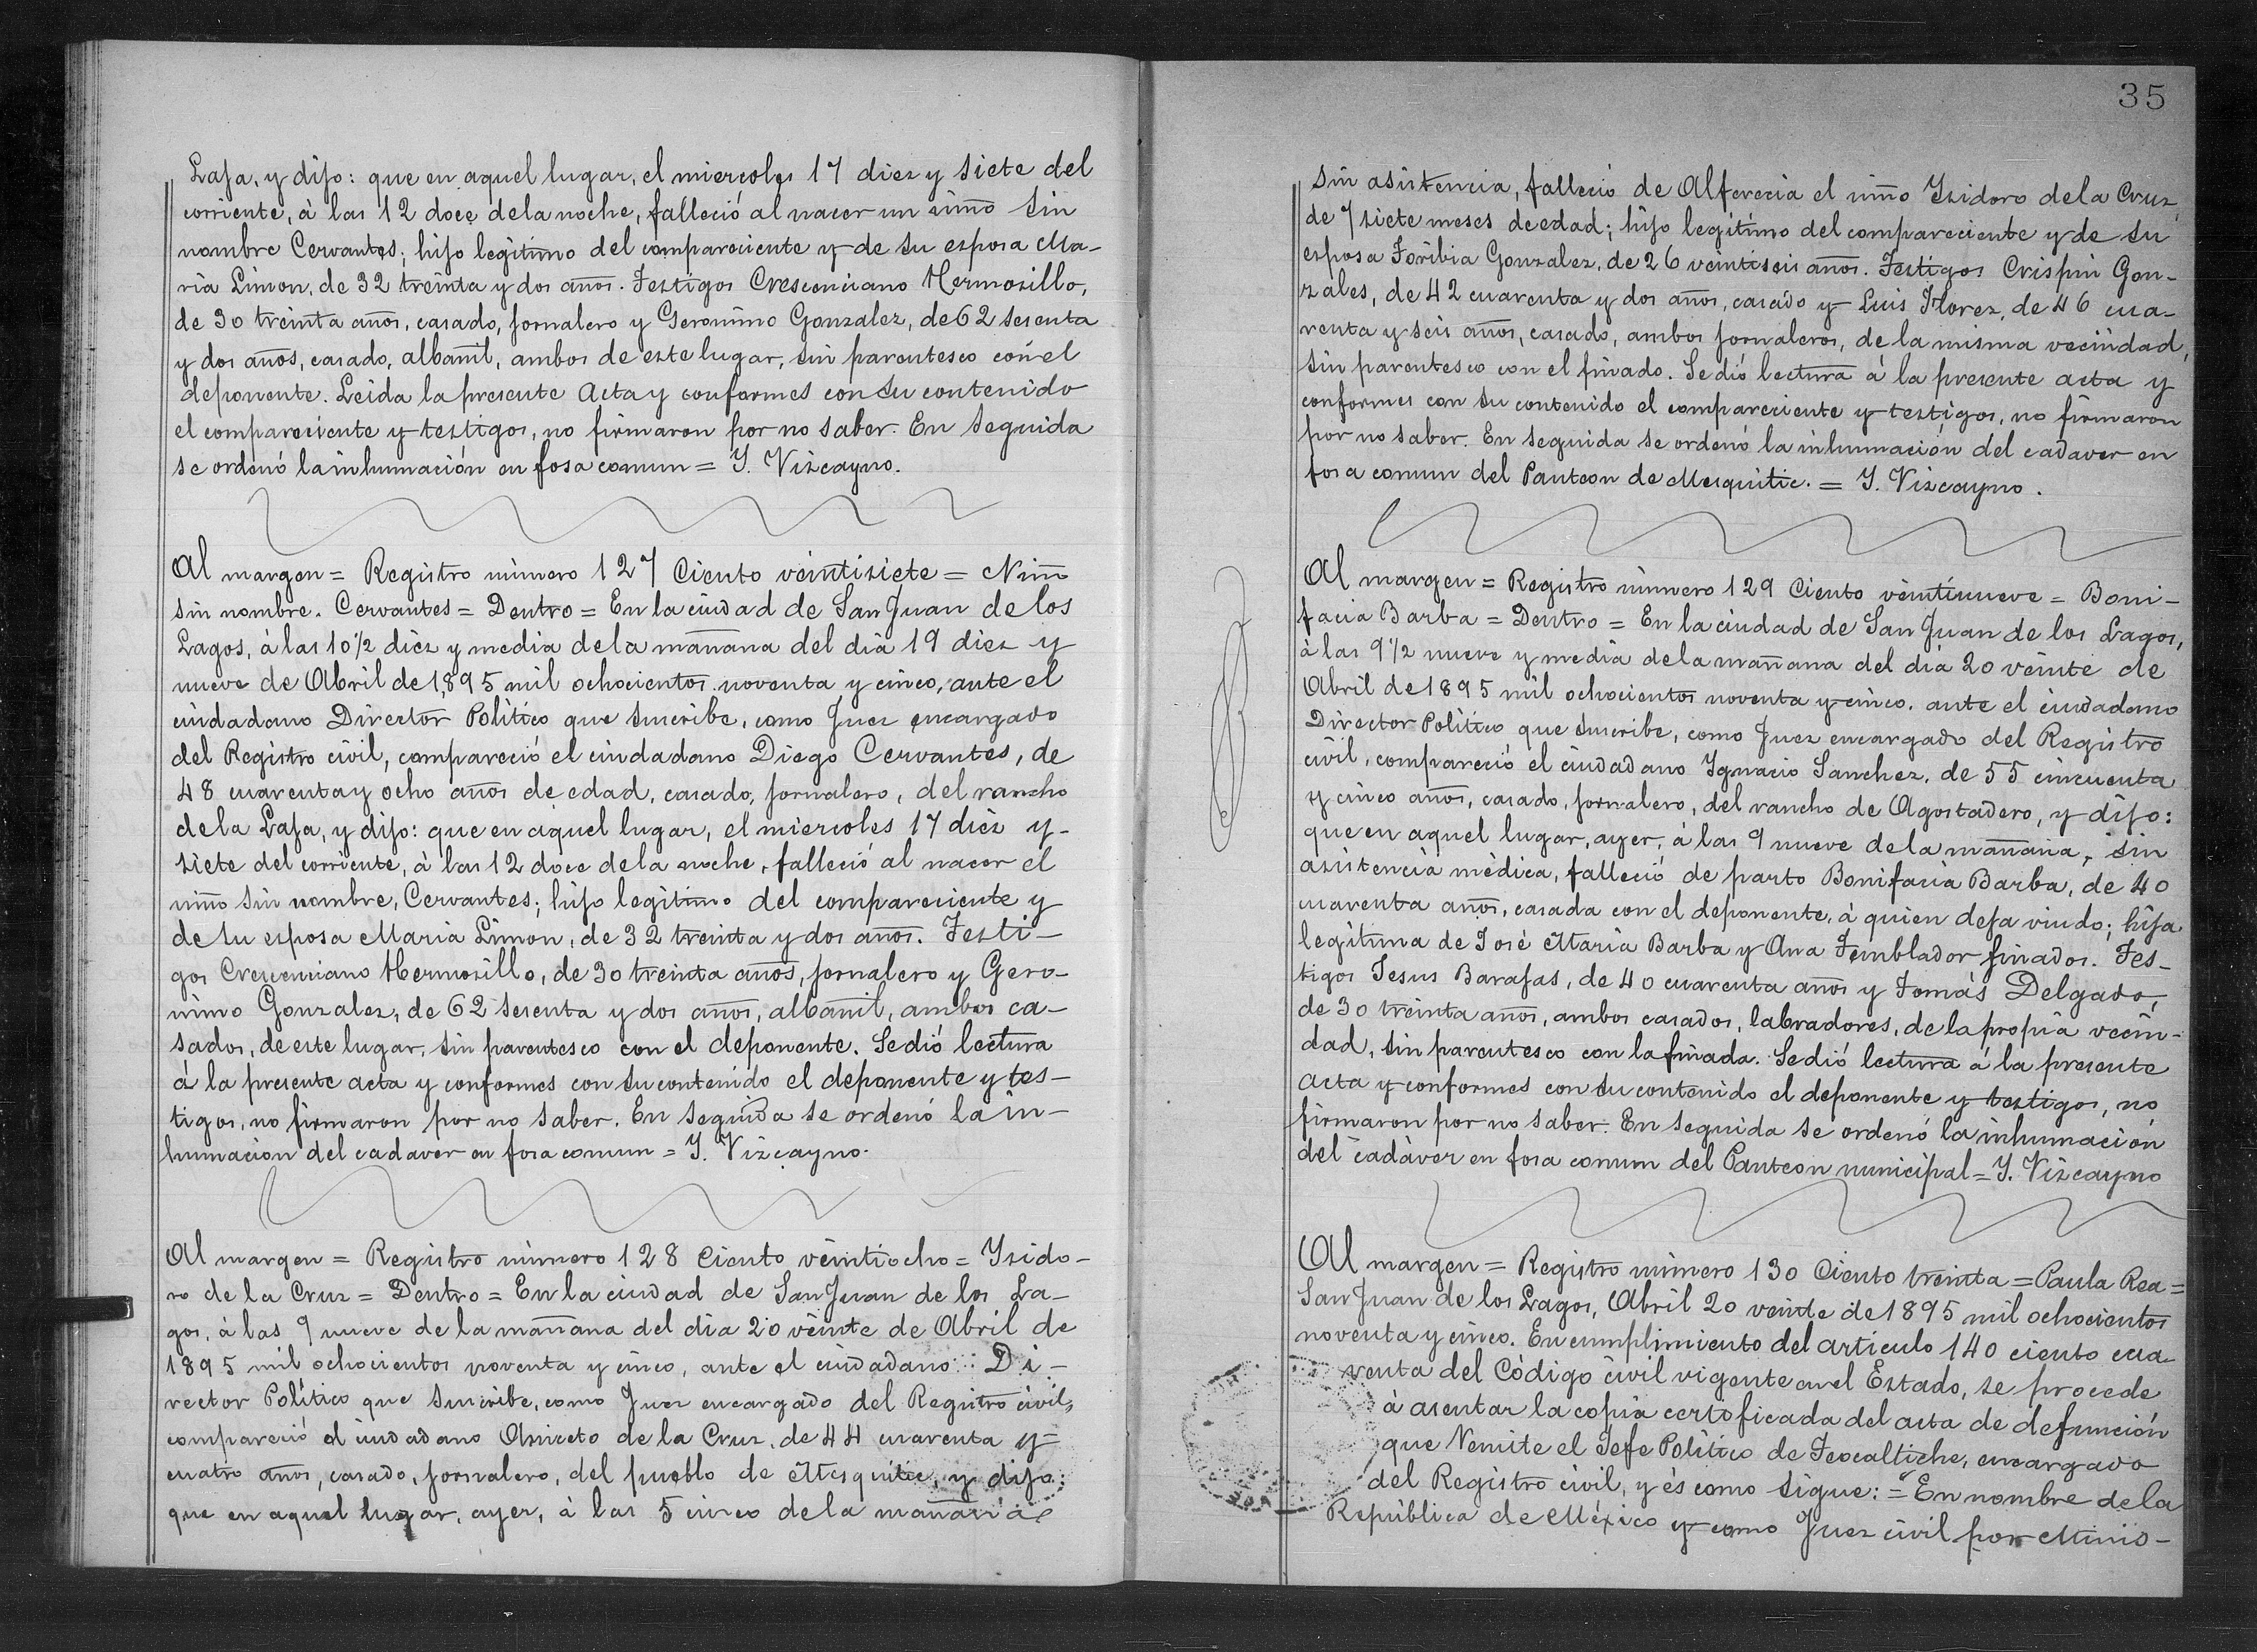 Laja, y dijo: que en aquel lugar, el miercoles 17 diez y siete del
corriente, à las 12 doce de la noche, falleció al nacer un niño sin
nombre Cervantes; hijo legitimo del compareciente y de su esposa Ma-
ria Limon, de 32 treinta y dos años. Testigos Cresenciano Hermosillo,
de 30 treinta años, casado, jornalero y Geronimo Gonzalez, de 62 sesenta
y dos años, casado, albañil, ambos de este lugar, sin parentesco con el
deponente. Leida la presente acta y conformes con su contenido
el compareciente y testigos, no firmaron por no saber. En seguida
se ordenó la inhumación en fosa comun = Y. Vizcayno.
Al margen = Registro número 127 Ciento veintisiete = Niño
sin nombre. Cervantes = Dentro = En la ciudad de San Juan de los
Lagos, à las 10 1/2 diez y media de la mañana del dia 19 diez y
nueve de Abril de 1,895 mil ochocientos noventa y cinco, ante el
ciudadano Director Politico que suscribe, como Juez encargado
del Registro civil, compareció el ciudadano Diego Cervantes, de
48 cuarenta y ocho años de edad, casado, jornalero, del rancho
de la Laja, y dijo: que en aquel lugar, el miercoles 17 diez y-
siete del corriente, à las 12 doce de la noche, falleció al nacer el
niño sin nombre, Cervantes; hijo legitimo del compareciente y
de su esposa Maria Limon, de 32 treinta y dos años. Testi-
gos Cresenciano Hermosillo, de 30 treinta años, jornalero y Gero-
nimo Gonzalez, de 62 sesenta y dos años, albañil, ambos ca-
sados, de este lugar, sin parentesco con el deponente. Se dió lectura
á la presente acta y conformes con su contenido el deponente y tes-
tigos, no firmaron por no saber. En seguida se ordenó la in-
humación del cadaver en fosa comun = Y. Vizcayno.
Al margen = Registro número 128 Ciento veintiocho = Ysido-
ro de la Cruz = Dentro = En la ciudad de San Juan de los La-
gos, à las 9 nueve de la mañana del dia 20 veinte de Abril de
1895 mil ochocientos noventa y cinco, ante el ciudadano Di-
rector Politico que suscribe, como Juez encargado del Registro civil,
compareció el ciudadano Aniceto de la Cruz, de 44 cuarenta y
cuatro años, casado, jornalero, del pueblo de Mezquitic, y dijo:
que en aquel lugar, ayer, à las 5 cinco de la mañana
35
sin asistencia, falleció de Alferecia el niño Ysidoro de la Cruz,
de 7 siete meses de edad; hijo legítimo del compareciente y de su
esposa Toribia Gonzalez, de 26 veintiseis años. Testigos Crispin Gon-
zales, de 42 cuarenta y dos años, casado y Luis Florez, de 46 cua-
renta y seis años, casado, ambos jornaleros, de la misma vecindad,
sin parentesco con el finado. Se dió lectura à la presente acta y
conformes con su contenido el compareciente y testigos, no firmaron
por no saber. En seguida se ordenó la inhumación del cadaver en
fosa comun del Panteon de Mesquitic. = Y. Vizcayno.
Al margen = Registro número 129 Ciento veintinueve = Boni-
facia Barba = Dentro = En la ciudad de San Juan de los Lagos,
à las 9 1/2 nueve y media de la mañana del dia 20 veinte de
Abril de 1895 mil ochocientos noventa y cinco. ante el ciudadano
Director Politico que suscribe, como Juez encargado del Registro
civil, compareció el ciudadano Ygnacio Sanchez, de 55 cincuenta
y cinco años, casado, jornalero, del rancho de Agostadero, y dijo:
que en aquel lugar, ayer, à las 9 nueve de la mañana, sin
asistencia mèdica, falleció de parto Bonifacia Barba, de 40
cuarenta años, casada con el deponente, á quien deja viudo; hija
legitima de José Maria Barba y Ana Temblador finados. Tes-
tigos Jesus Barajas, de 40 cuarenta años y Tomás Delgado,
de 30 treinta años, ambos casados, labradores, de la propia vecin-
dad, sin parentesco con la finada. Se dió lectura á la presente
acta y conformes con su contenido el deponente y testigos, no
firmaron por no saber. En seguida se ordenó la inhumación
del cadàver en fosa comun del Panteon municipal = Y. Vizcayno
Al margen = Registro número 130 Ciento treinta = Paula Rea =
San Juan de los Lagos, Abril 20 veinte de 1895 mil ochocientos
noventa y cinco. En cumplimiento del articulo 140 ciento cua-
renta del Código civil vigente en el Estado, se procede
à asentar la copia certificada del acta de defunción
que remite el Jefe Político de Teocaltiche, encargado
del Registro civil, y és como sigue: = En nombre de la
República de México y como Juez civil por Minis-